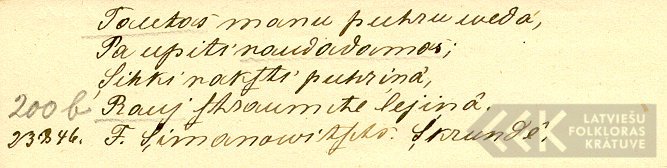 Tautas manu puhru weda,
Pa upiti raudadamas;
Sihki raksti puhrinâ,
200b Rauj straumite lejinâ.
23846. F. Simanowitschs. Skrundê.
LATVIEŠU
FOLKLORAS
KRĀTUVE